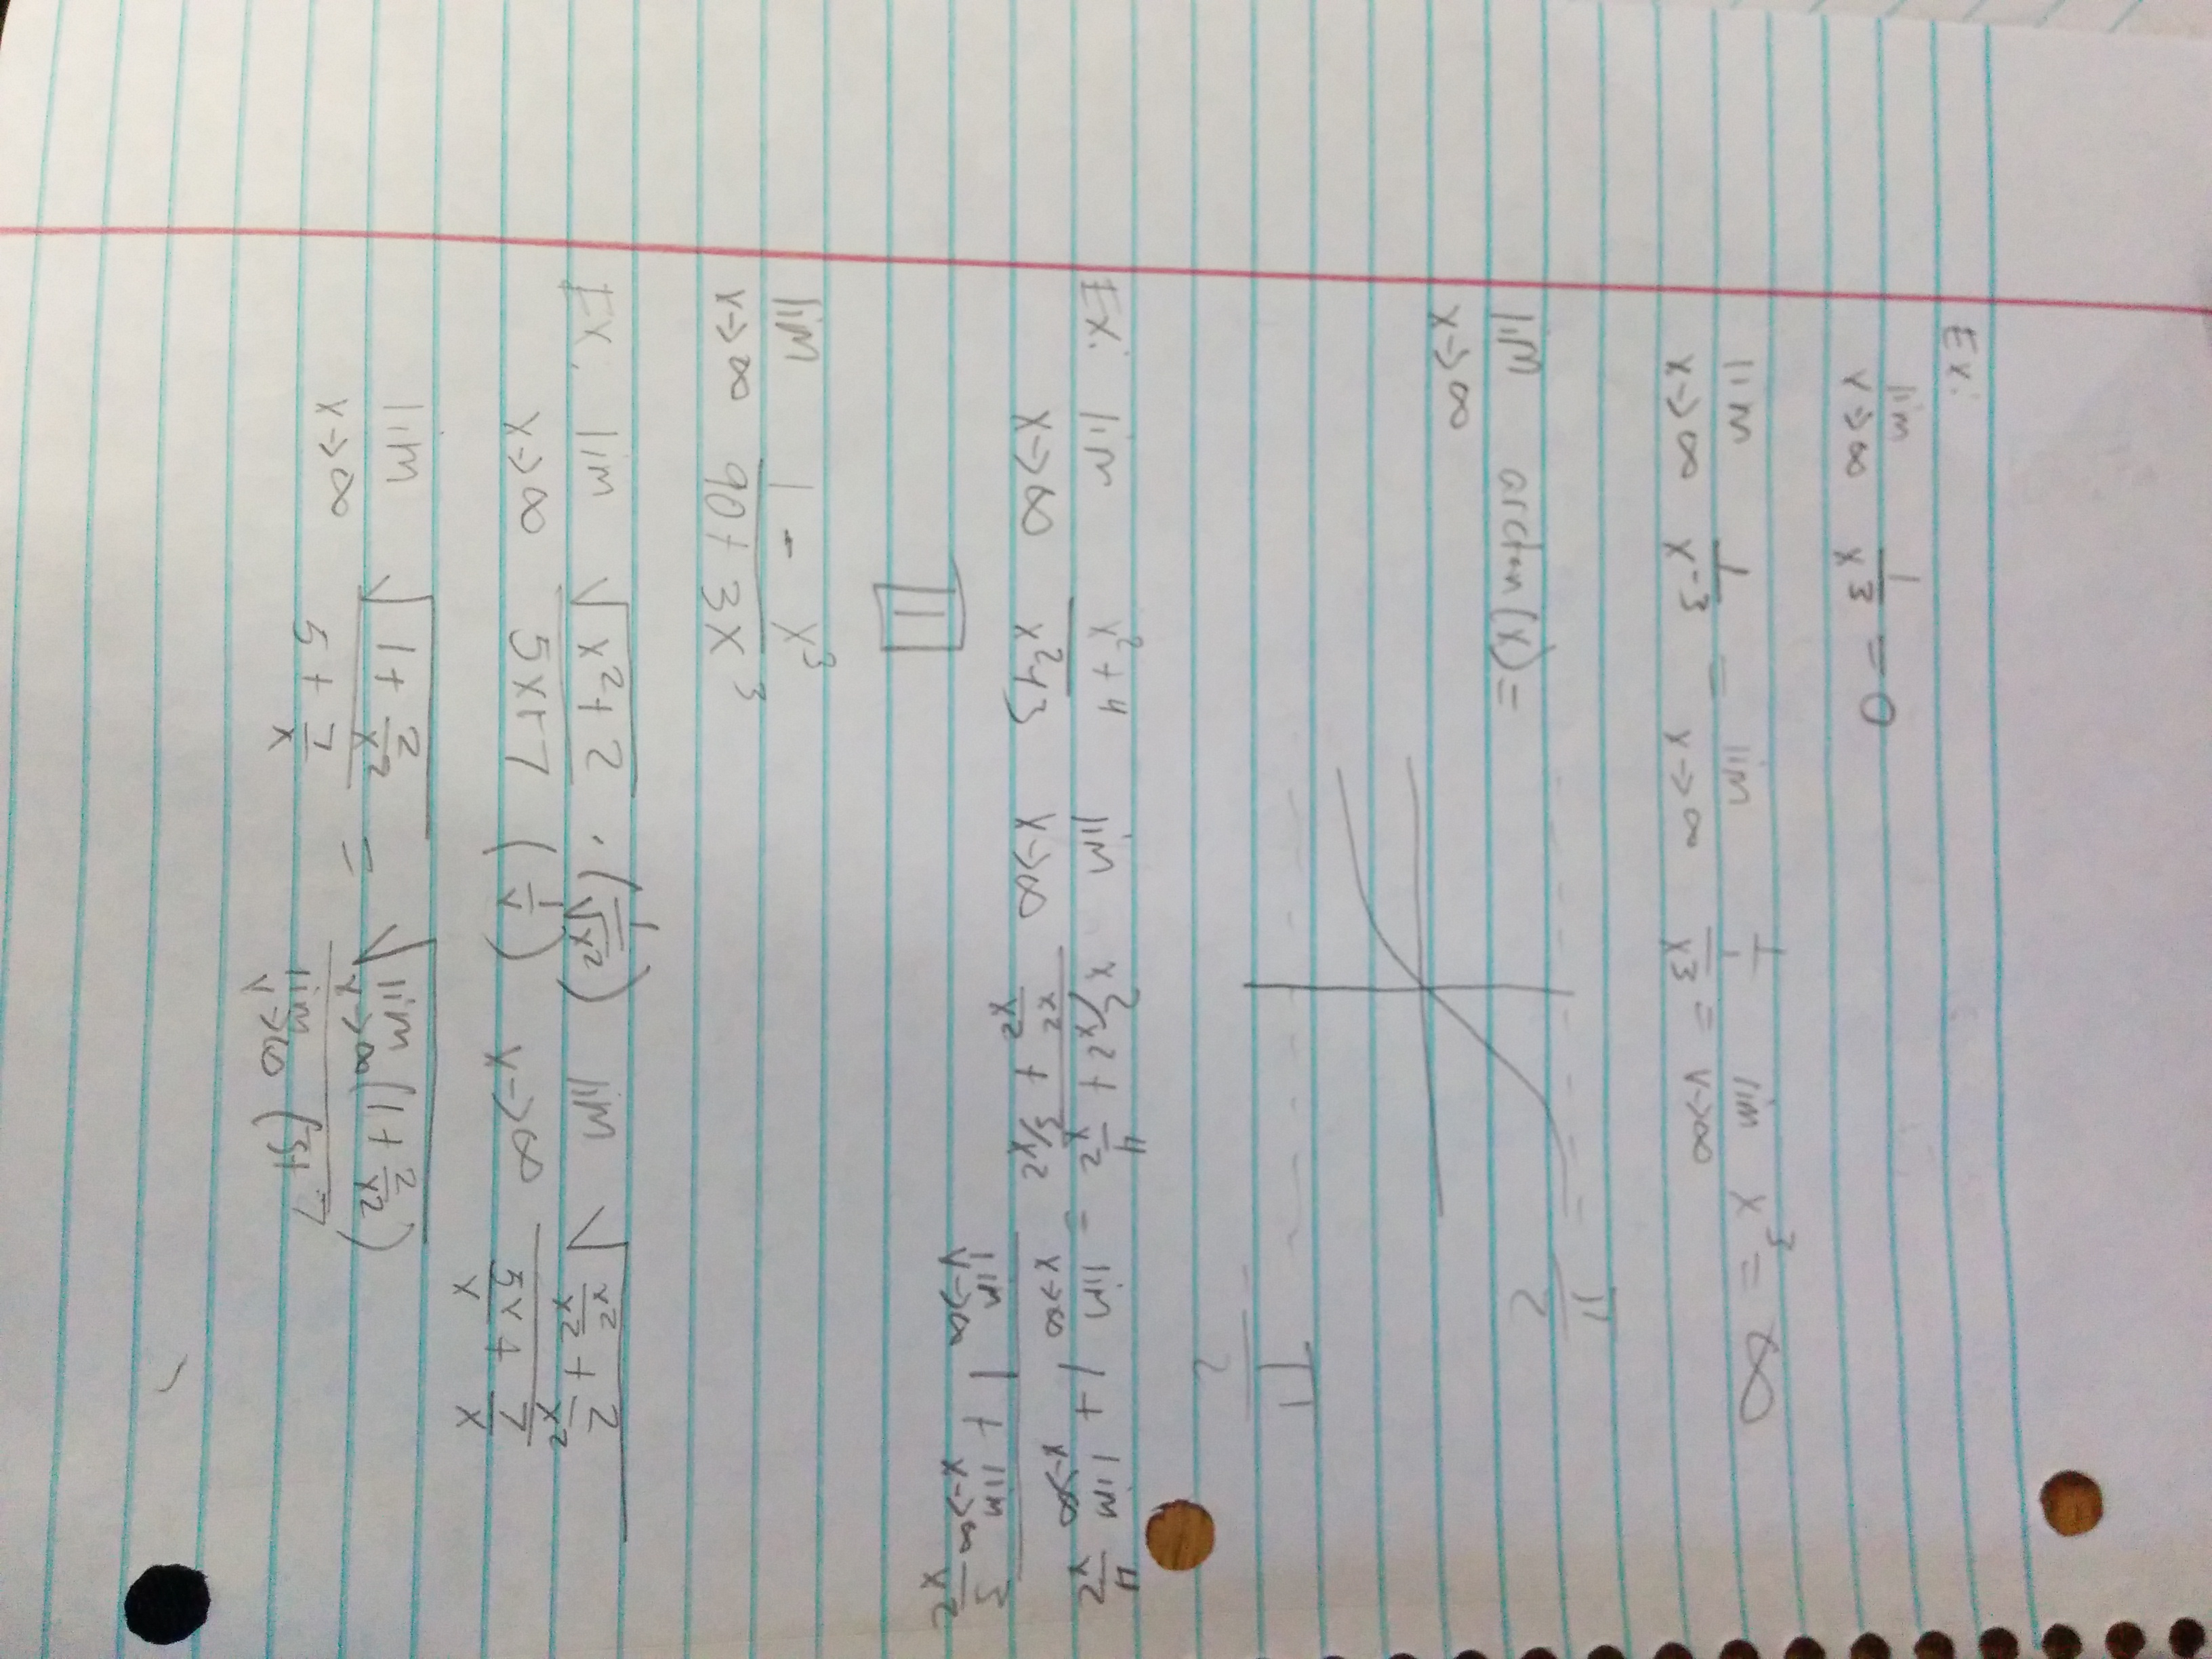 Ex:
lim x→∞ 1/x^3 = 0
lim x→∞ 1/x^-3 = lim x→∞ 1/1/x^3 = lim x→∞ x^3 = ∞
lim x→∞ arctan(x) = π/2
π/2
Ex: lim x→∞ (x^2+4)/(x^2+3) lim x→∞ (x^2/x^2 + 4/x^2)/(x^2/x^2 + 3/x^2) = (lim x→∞ 1 + lim x→∞ 4/x^2)/(lim x→∞ 1 + lim x→∞ 3/x^2)
lim x→∞ (1 - x^3)/(90 + 3x^3)
Ex: lim x→∞ √(x^2+2)/(5x+7) · (1/√x^2)/(1/x) lim x→∞ √(x^2/x^2 + 2/x^2)/(5x/x + 7/x)
lim x→∞ √(1 + 2/x^2)/(5 + 7/x) = √(lim x→∞ (1 + 2/x^2))/(lim x→∞ (5+7